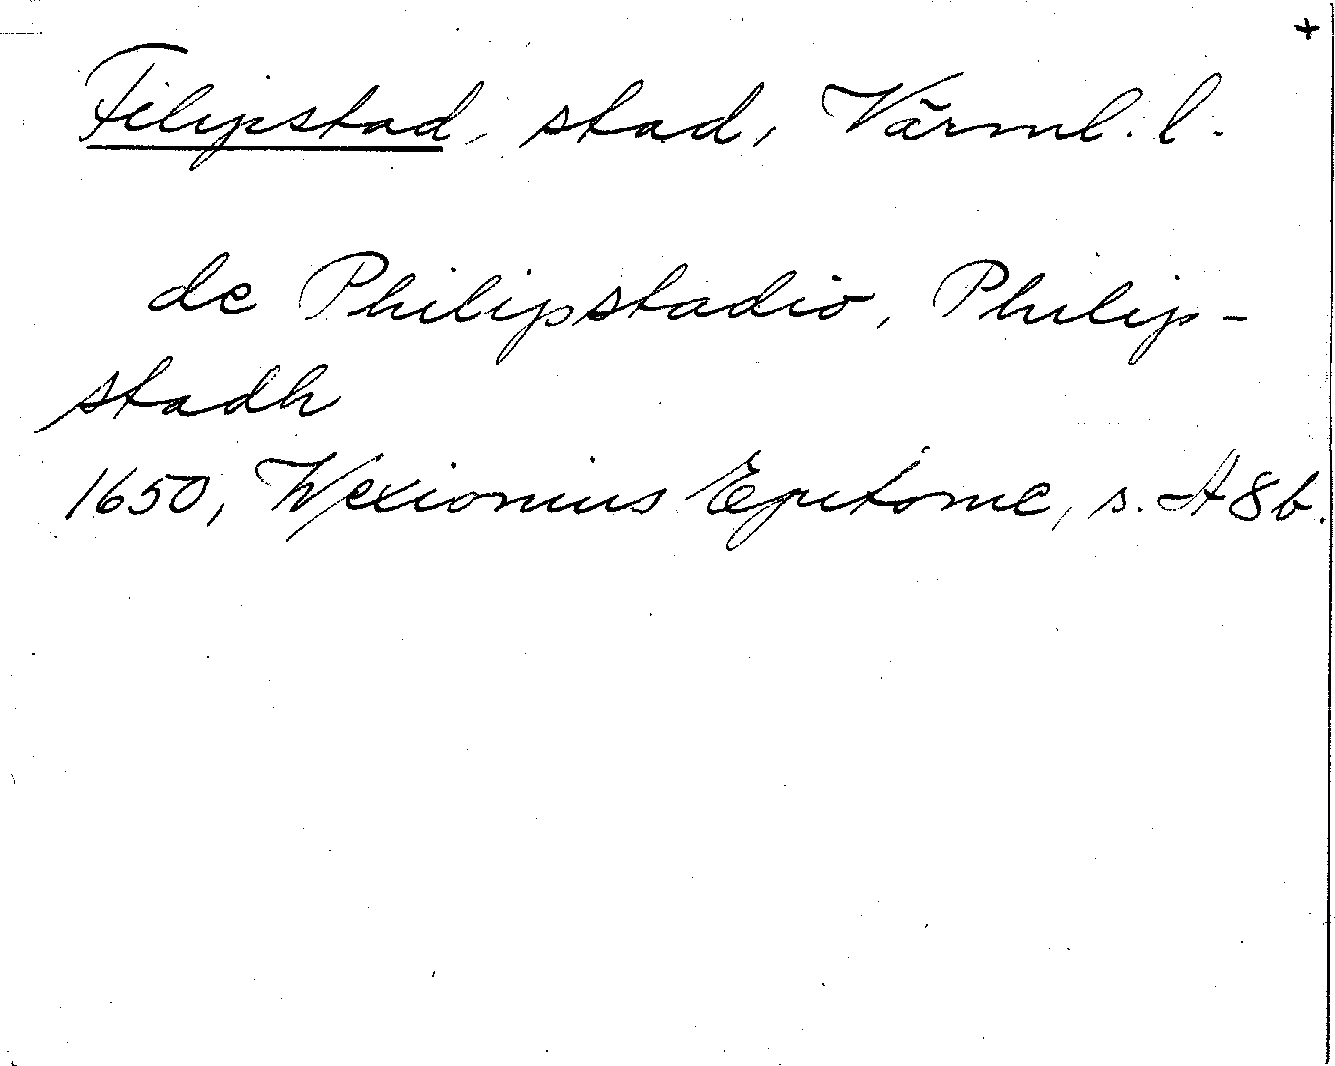 +
Filipstad, stad, Värml. l.
de Philipstadio, Philip-
stadh
1650, Wexionius Epitome, s. A8b.